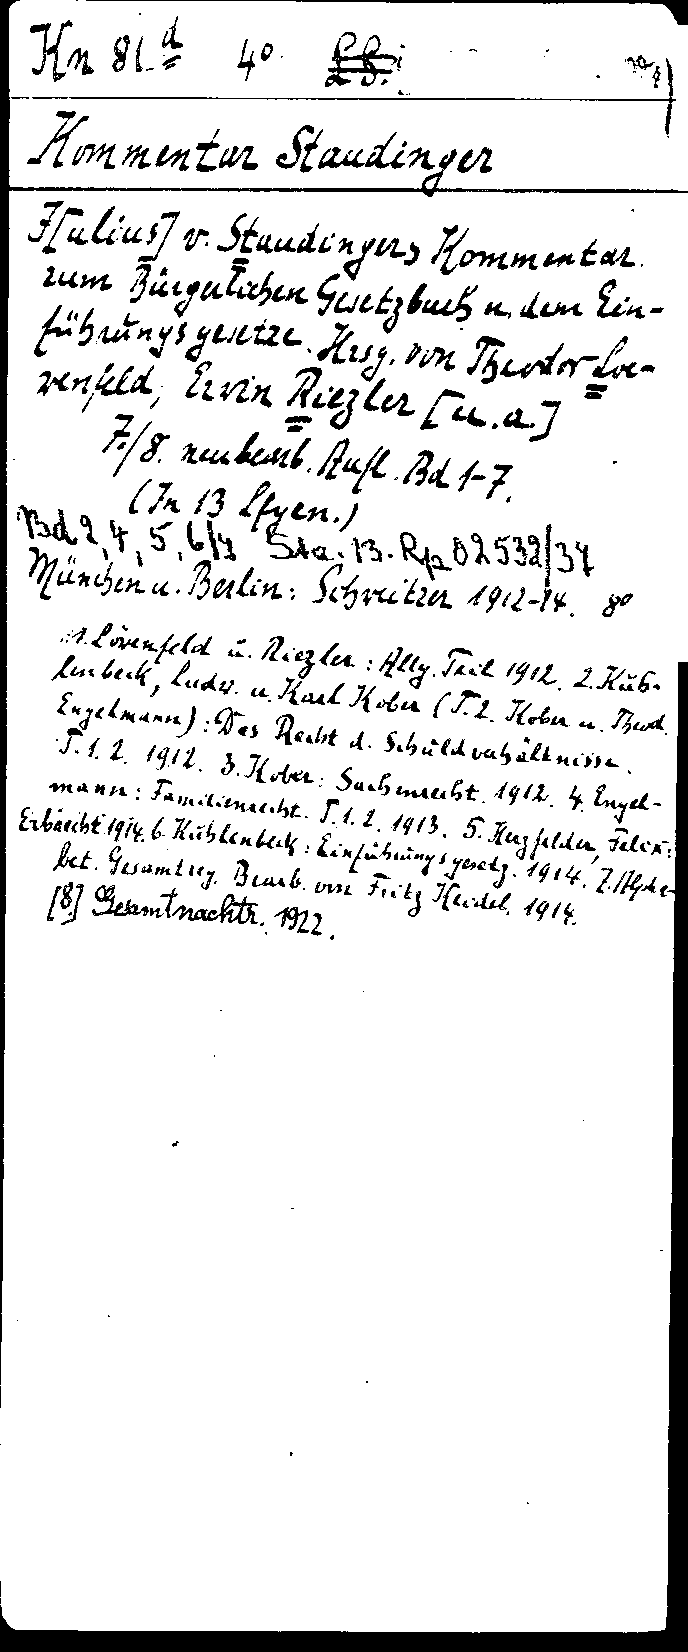 Kn 81 d 4°
Kommentar Staudinger
J[ulius] v. Staudingers Kommentar
zum Bürgerlichen Gesetzbuch u. dem Ein-
führungsgesetze. Hrsg. von Theodor Loe-
wenfeld, Erwin Riezler [u. a.]
7./8. neubearb. Aufl. Bd 1-7.
(In 13 Lfgen.)
Bd 2, 4, 5, 6/7 Sta. 13. Rp 02532/34
München u. Berlin: Schweitzer 1912-14. 8°
1. Löwenfeld u. Riezler: Allg. Teil 1912. 2. Kuh-
lenbeck, Ludw. u. Karl Kober (T. 2. Kober u. Theod.
Engelmann): Das Recht d. Schuldverhältnisse.
T. 1. 2. 1912. 3. Kober: Sachenrecht. 1912. 4. Engel-
mann: Familienrecht. T. 1. 2. 1913. 5. Herzfelder, Felix:
Erbrecht 1914. 6. Kuhlenbeck: Einführungsgesetz. 1914. 7. Alpha-
bet. Gesamtreg. Bearb. von Fritz Keidel. 1914.
[8] Gesamtnachtr. 1922.